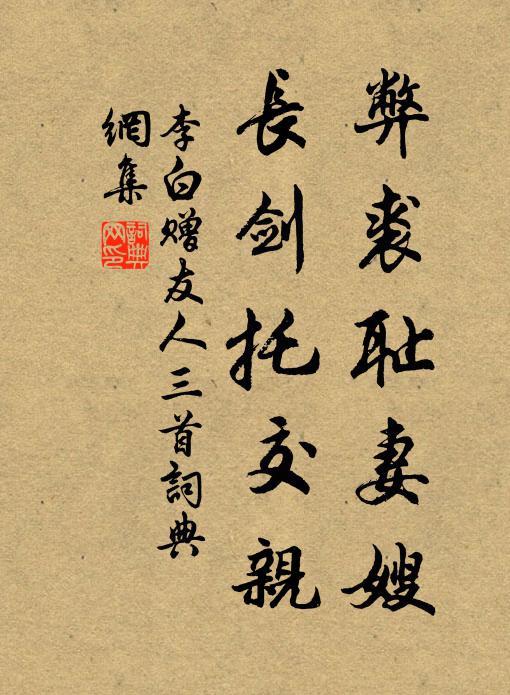 弊裘耻妻嫂
長剑托交親
李白赠友人三首詞典
網集
詞典网印